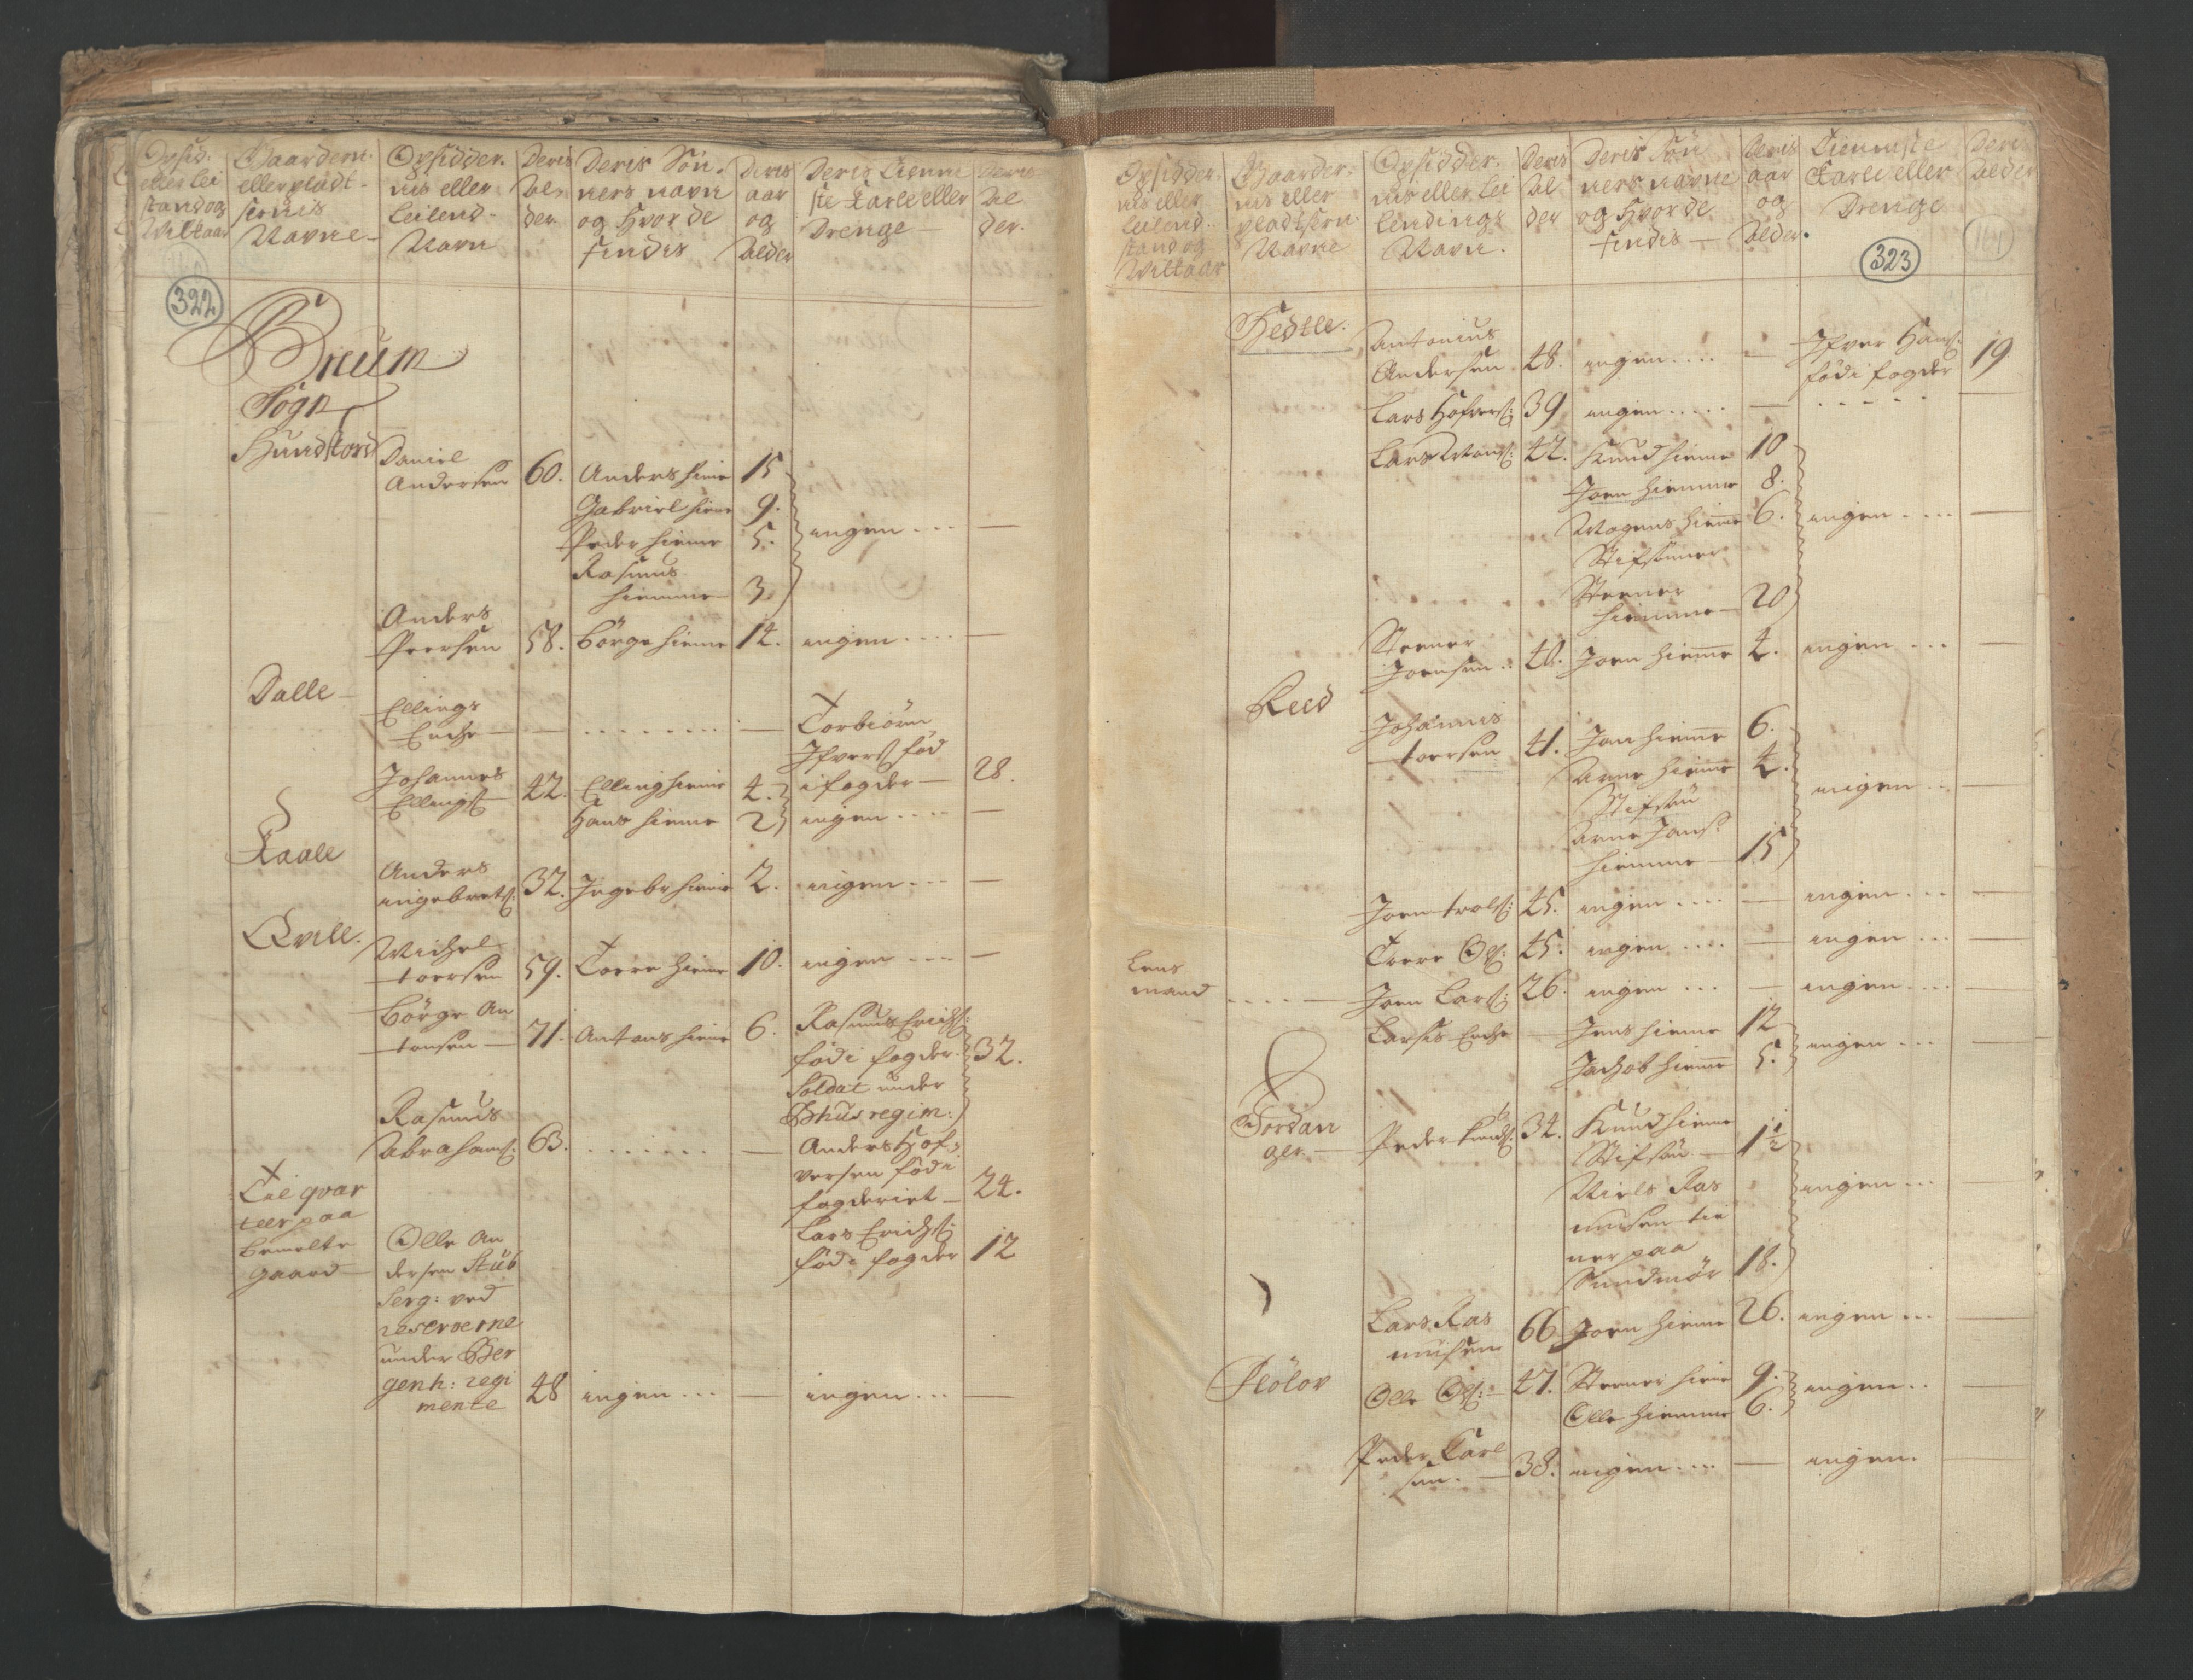 Opsid:
eller Lei
stand og
Vilkaar
Gaardern:
eller pladt-
sernis
Navne
Opsidder-
nis eller
Leilend-
Navn
Deris
Al
der
Deris Søn-
ners navn
og Hvor de
findis
Deris
aar
og
Alder
Deris Tienni
ste Karle eller
Drenge
Deris
Al
der.
322
Breum
Sogn
Daniel
Andersen 60. Anders hieme 15
Gabriel hieme 9.
Peder hieme 5. ingen
Rasmus
hiemme 3.
Anders
Peersen 58. Børge hieme 14. ingen
Dalle
Ellings
Enche
Torbiørn
Ifvers fød
i fogder 28.
Johannes
Ellings 42. Elling hieme 4.
Hans hieme 2 ingen
Kaale
Anders
ingebrets: 32. Ingebr hieme 2. ingen
Qvile.
Michel
toersen 59. Toere hieme 10. ingen
Børge An
tonsen 71. Antons hieme 6.
Rasmus Erichs:
fød i fogder. 32.
Soldat under
Bhus regim:
Rasmus
Abrahams: 63.
Anders Hof-
versen fød i
fogderiet 24.
Lars Erichs:
fød i fogder 12
Til qvar
teer paa
bemelte
gaard
Olle An
dersen Stub
Serg: ved
reserverne
under Ber
genh: regi
mente 48 ingen ingen
Opsidder-
nis eller
Leilend-
stand og
Vilkaar
Gaarder-
nis eller
pladtsern-
Navne
Opsidder-
nis eller Lei
lendings
Navn.
Deris
Al
der
Deris Søn
ners navne
og Hvor de
findis
Deris
aar
og
Alder.
Tienniste
Karle eller
Drenge
Deris
Alder
323
Hedtle.
Antonius
Andersen 48. ingen
Ifver Hans:
fød i fogder 19
Lars Hofvers: 39 ingen
Lars Mons: 42. Knud hieme 10
Joen hiemme 8.
Mogens hieme 6. ingen
Stifsønner
Steener
hiemme 20
Steener
Joensen 40. Joen hieme 4. ingen
Reed
Johannis
toersen 41. Jan hieme 6.
Arne hieme 4.
Stifsøn
ingen
Arne Jans:
hiemme 15
Joen trols: 45. ingen ingen
Tore Ols: 45. ingen ingen
Lens
mand
Joen Lars: 26. ingen ingen
Larsis Enche Jens hieme 12
Jachob hieme 5. ingen
Fordan
ger.
Peder Knuds: 34. Knud hieme
Stifsøn 1½
Niels Ras
musen tie
ner paa
Sundmør 18.
ingen
Lars Ras
musen 66 Joen hieme 26. ingen
Fløtov
Olle Ols: 47. Steener hieme 9.
Olle hiemme 6. ingen
Peder Carl
sen. 38. ingen ingen.